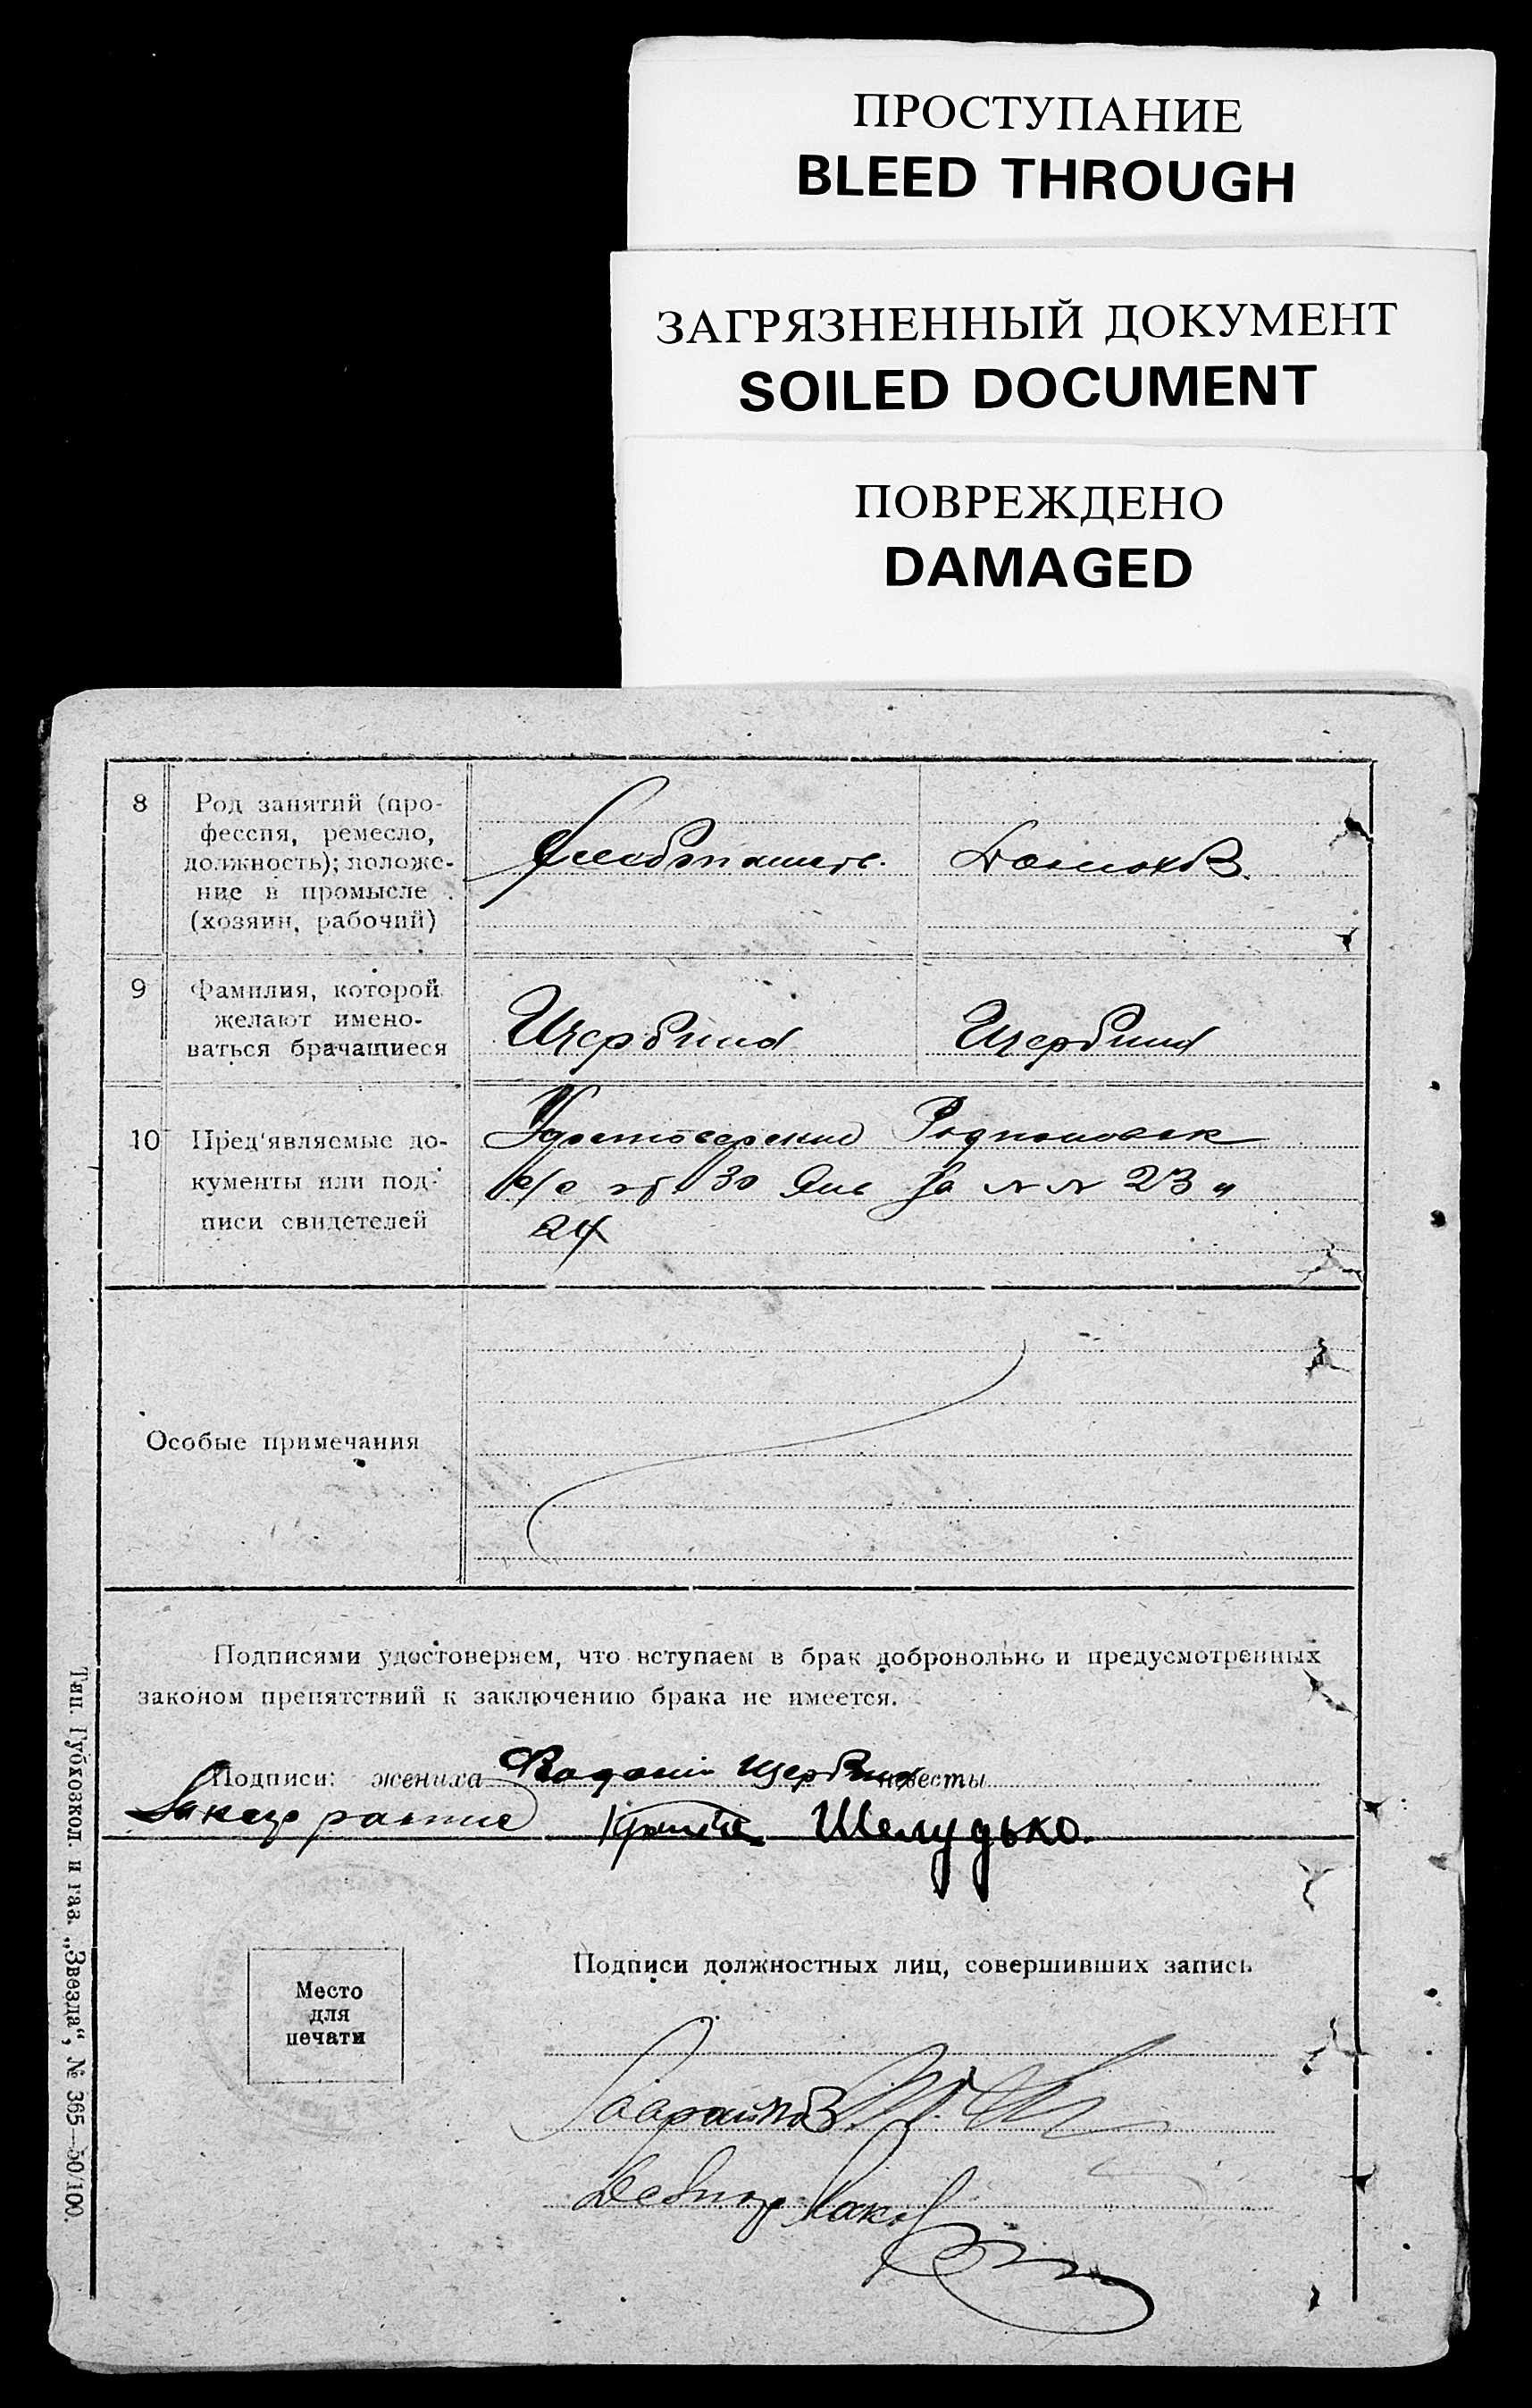 ПРОСТУПАНИЕ
BLEED THROUGH
ЗАГРЯЗНЕННЫЙ ДОКУМЕНТ
SOILED DOCUMENT
ПОВРЕЖДЕНО
DAMAGED
8
Род занятий (про-
фессия, ремесло,
должность); положе-
ние в промысле
(хозяин, рабочий)
Хлебопашец.
Домохоз.
9
Фамилия, которой
желают имено-
ваться брачащиеся
Щербина
Щербина
10
Пред'являемые до-
кументы или под-
писи свидетелей
Удостоверение
с/с от 30 Янв за NN 23 и
24
Особые примечания
Подписями удостоверяем, что вступаем в брак добровольно и предусмотренных
законом препятствий к заключению брака не имеется.
Подписи: жениха Щербина невесты
Шелудько.
Место
для
печати
Подписи должностных лиц, совершивших запись
Тип. Губкозкол. и газ. „Звезда“, № 365—50/100.